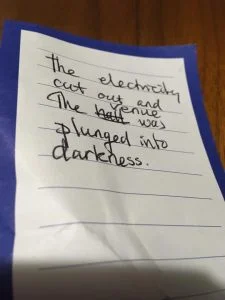 the electricity
cut out and
The venue was
plunged into
darkness.